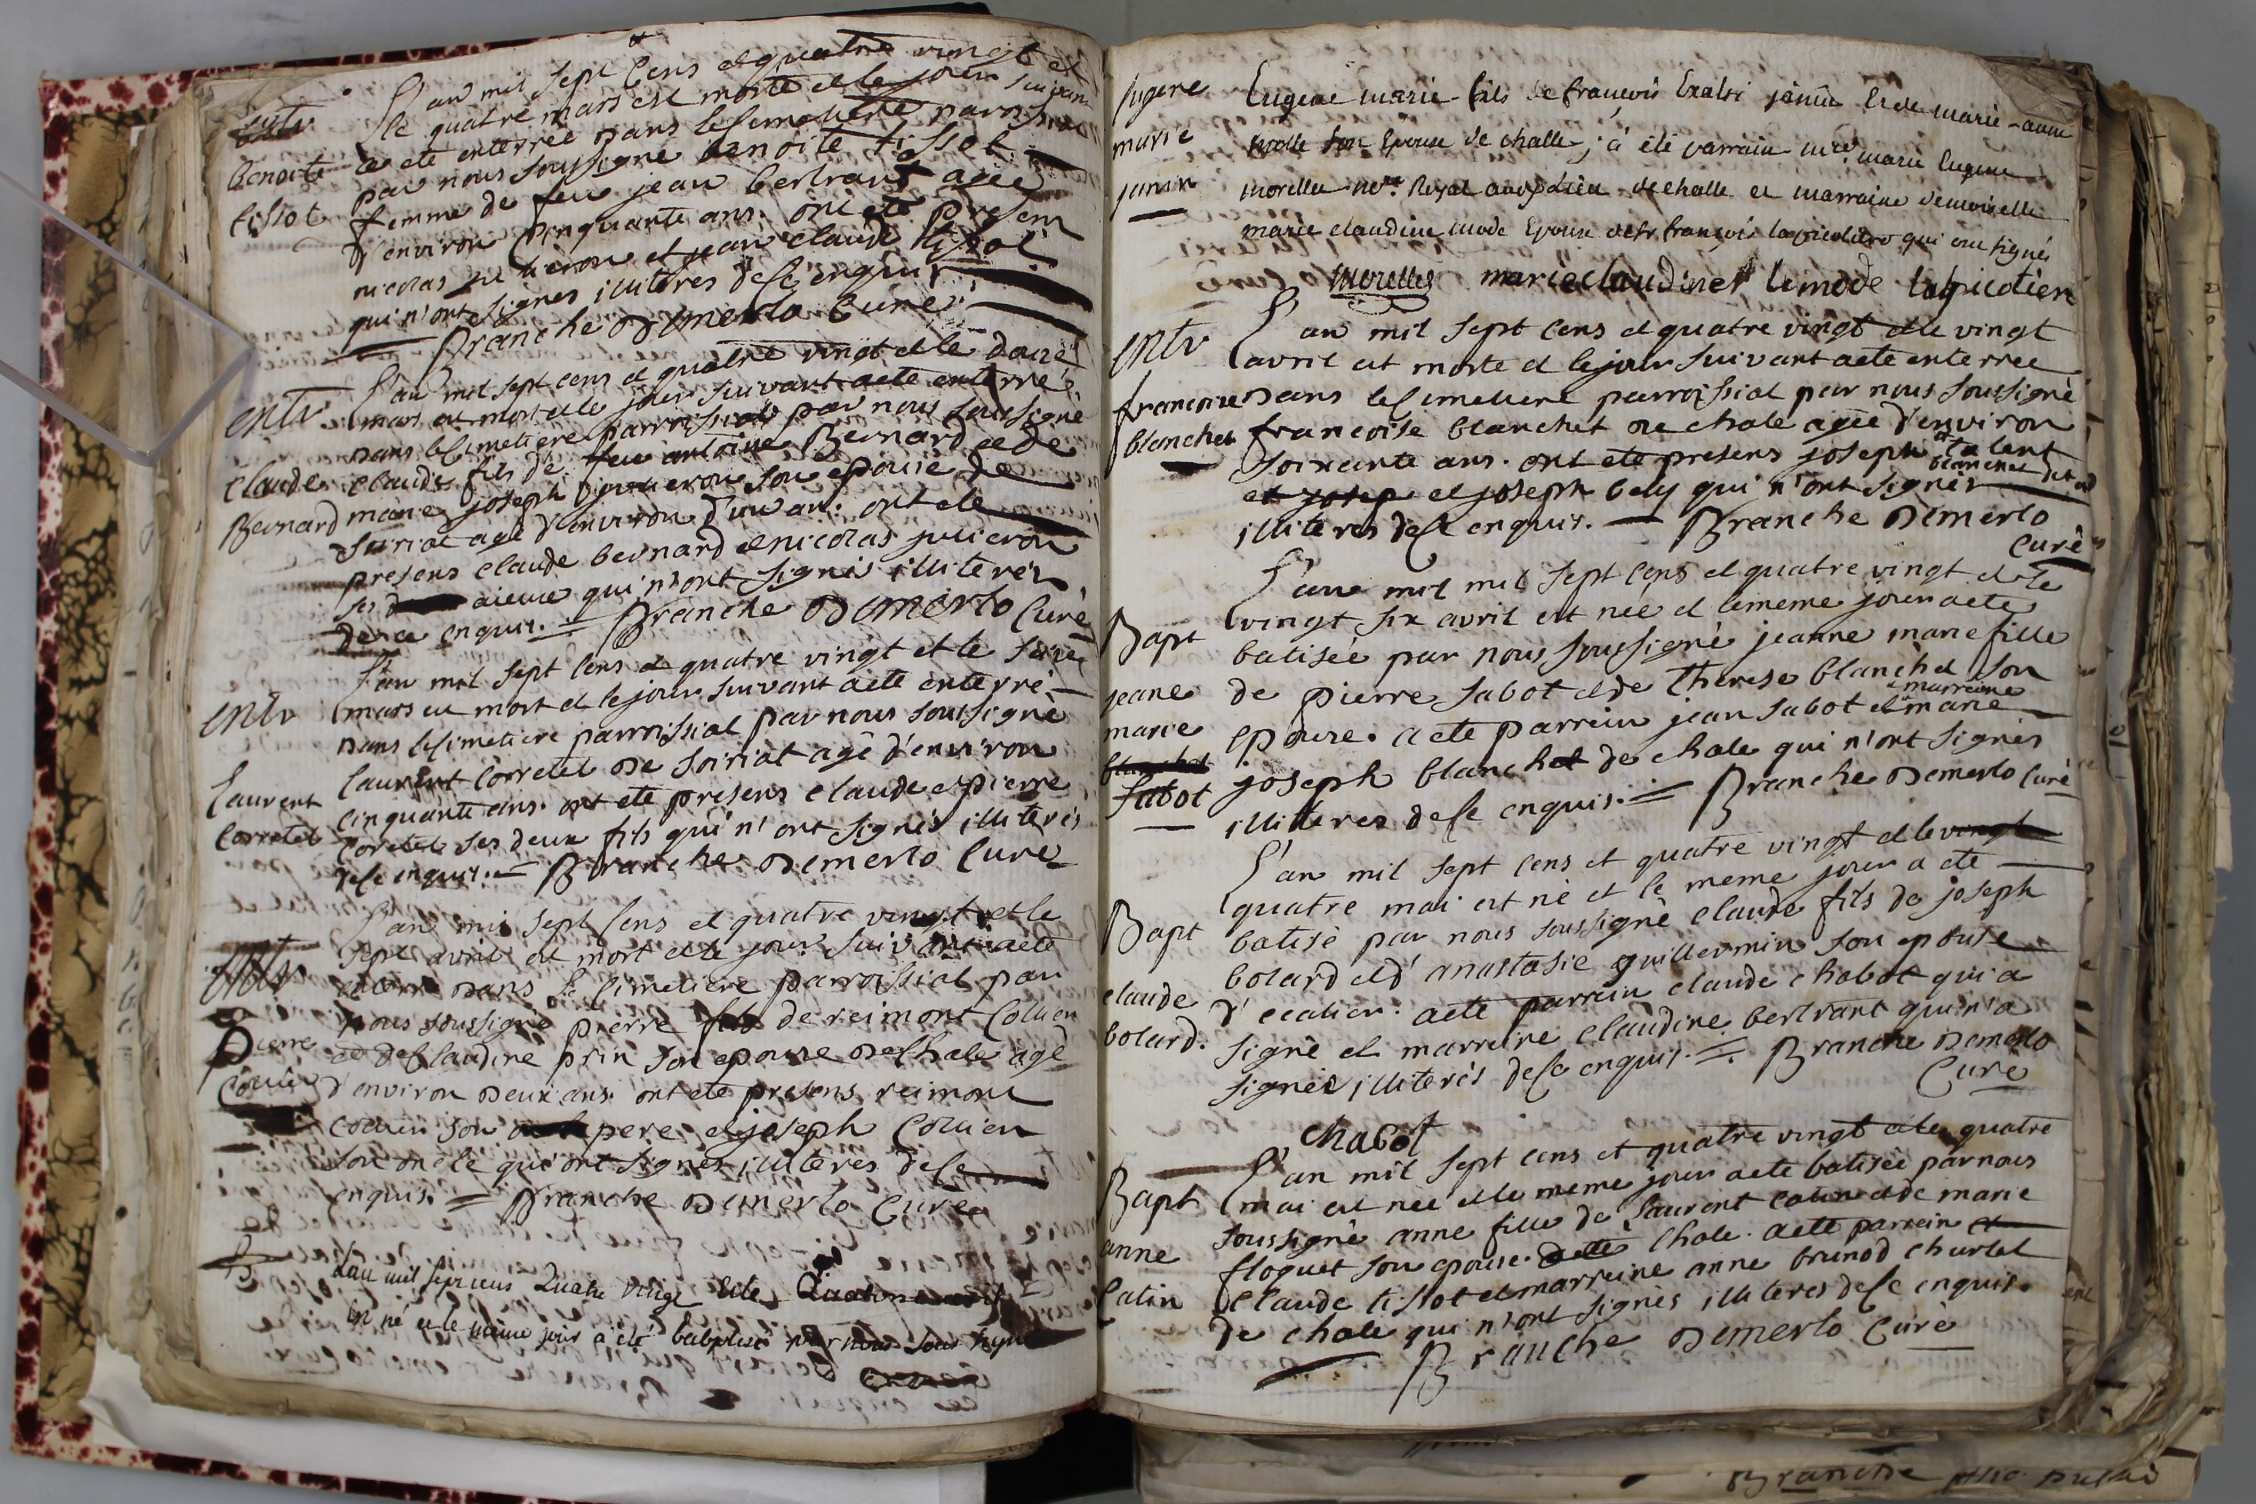 L'an mil sept Cens et quatre vingt et
le quatre mars est morte et le jour suivant
a ete enterrée dans le Cimetiere parroissial
par nous soussigné benoite tissot
femme de feu jean bertrant agée
d'environ Cinquante ans. ont ete presens
nicolas julieron et jean claude tissot
qui n'ont signés illiterés de ce enquis
Branche Demerlo Curé
entr
benoite
tissot
L'an mil sept cens et quatre vingt et le douze
mars est mort et le jour suivant a ete enterré
dans le Cimetiere parroissial par nous soussigné
claude fils de feu antoine Bernard et de
marie joseph julieron son epouse de
Soiriat agé d'environ d'un an. ont ete
presens claude bernard et nicolas julieron
ses aieux qui n'ont signés illiterés
de ce enquis. = Branche Demerlo Curé
entr
Claude
Bernard
L'an mil sept Cens et quatre vingt et le seize
mars est mort et le jour suivant a ete enterré
dans le Cimetiere parroissial par nous soussigné
laurent Corretel de Soiriat agé d'environ
cinquante ans. ont ete presens claude et pierre
Coretel ses deux fils qui n'ont signés illiterés
de ce enquis. = Branche Demerlo Curé
entr
Laurent
Corretel
L'an mil sept Cens et quatre vingt et le
sept avril est mort et le jour suivant a ete
enterré dans le Cimetiere parroissial par
nous soussigné pierre fils de reimont
et de Claudine prin son epouse de Chale agé
d'environ deux ans. ont ete presens reimont
son pere et joseph
son oncle qui ont signés illiterés de ce
enquis. = Branche Demerlo Curé
entr
Pierre
L'an mil sept cens Quatre vingt et le
est né et le même jour a été baptisé par nous sous signé
Eugene
marie
janin
Eugene marie fils de francois janin et de marie anne
son Epouse de challe; a été parrain mre marie Eugene
morellet Royal audit Lieu de challe et marraine demoiselle
marie claudine Epouse de sr francois lapicotiere qui ont signés
Morellet marie claudine lapicotiere
entr
francoise
blanchet
L'an mil sept Cens et quatre vingt et le vingt
avril est morte et le jour suivant a ete enterree
dans le Cimetiere parroissial par nous soussigné
francoise blanchet de chale agée d'environ
soixante ans. ont ete presens joseph
blanchet
et joseph bely qui n'ont signés
illiterés de ce enquis. — Branche Demerlo
Curé
Bapt
jeane
marie
Sabot
L'an mil mil sept Cens et quatre vingt et le
vingt six avril est née et le meme jour a ete
batisée par nous soussigné jeanne marie fille
de pierre sabot et de Therese blanchet son
epouse. a ete parrein jean sabot et marreine marie
joseph blanchet de chale qui n'ont signés
illiterés de ce enquis. = Branche Demerlo Curé
Bapt
claude
bolard.
L'an mil sept Cens et quatre vingt et le
quatre mai est né et le meme jour a ete
batisé par nous soussigné claude fils de joseph
bolard et d'anastasie guillermin son epouse
d'ecalier. a ete parrein claude chabot qui a
signé et marreine claudine bertrant qui n'a
signée illiterés de ce enquis. = Branche Demerlo
Curé
chabot
Bapt
anne
Catin
L'an mil sept cens et quatre vingt et le quatre
mai est née et le meme jour a ete batisée par nous
soussigné anne fille de Laurent catin et de marie
floquet son epouse de chale. a ete parrein
claude tissot et marreine anne brunod churlet
de chale qui n'ont signés illiterés de ce enquis.
Branche Demerlo Curé